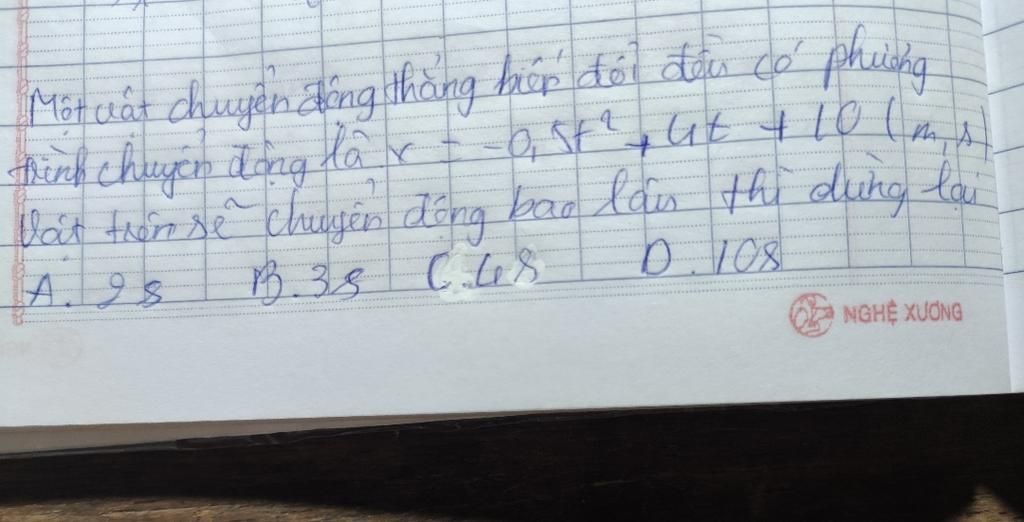 Một vật chuyển động thẳng biến đổi đều có phương
trình chuyển động là x = -0,5t² + 4t + 10 (m,s)
Vật trên sẽ chuyển động bao lâu thì dừng lại
A. 2s B. 3s C. 4s D. 10s
NGHỆ XƯƠNG